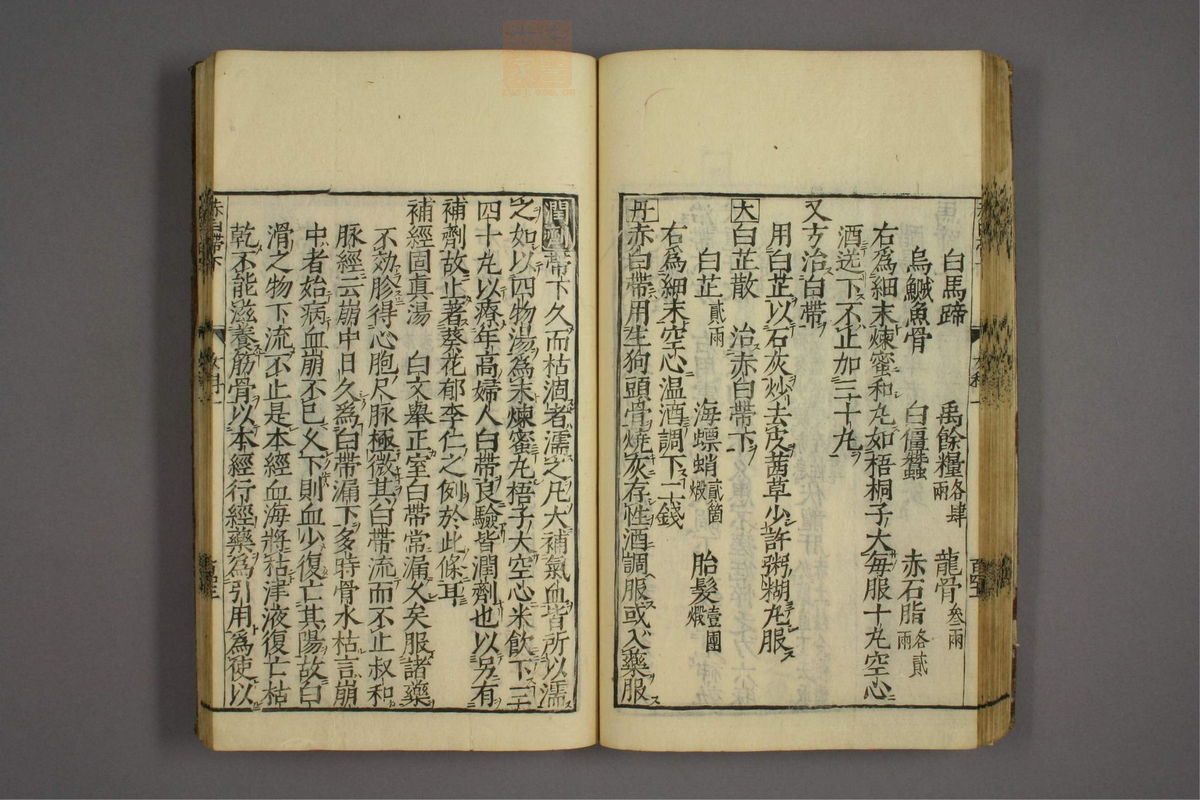 白馬蹄　禹餘糧各肆兩　龍骨叁兩
烏鰂魚骨　白僵蠶　赤石脂各貳兩
右為細末煉蜜和丸如梧桐子大每服十丸空心
酒送下不止加三十丸
又方治白帶
用白芷以石灰炒去皮茜草少許粥糊丸服
大白芷散　治赤白帶下
白芷貳兩　海螵蛸貳箇煅　胎髮壹團煅
右為細末空心温酒調下二錢
丹赤白帶用生狗頭骨燒灰存性酒調服或入藥服
潤劑帶下久而枯涸者濡之凡大補氣血皆所以濡
之如以四物湯為末煉蜜丸梧子大空心米飲下三
四十丸以療年高婦人白帶良驗皆潤劑也以另有
補劑故止著葵花郁李仁之例於此條耳
補經固真湯　白文舉正室白帶常漏久矣服諸藥
不効胗得心胞尺脉極微其白帶流而不止叔和
脉經云崩中日久為白帶漏下多時骨水枯言崩
中者始病血崩不已久下則血少復亡其陽故白
滑之物下流不止是本經血海將枯津液復亡枯
乾不能滋養筋骨以本經行經藥為引用為使以
赤白帶下